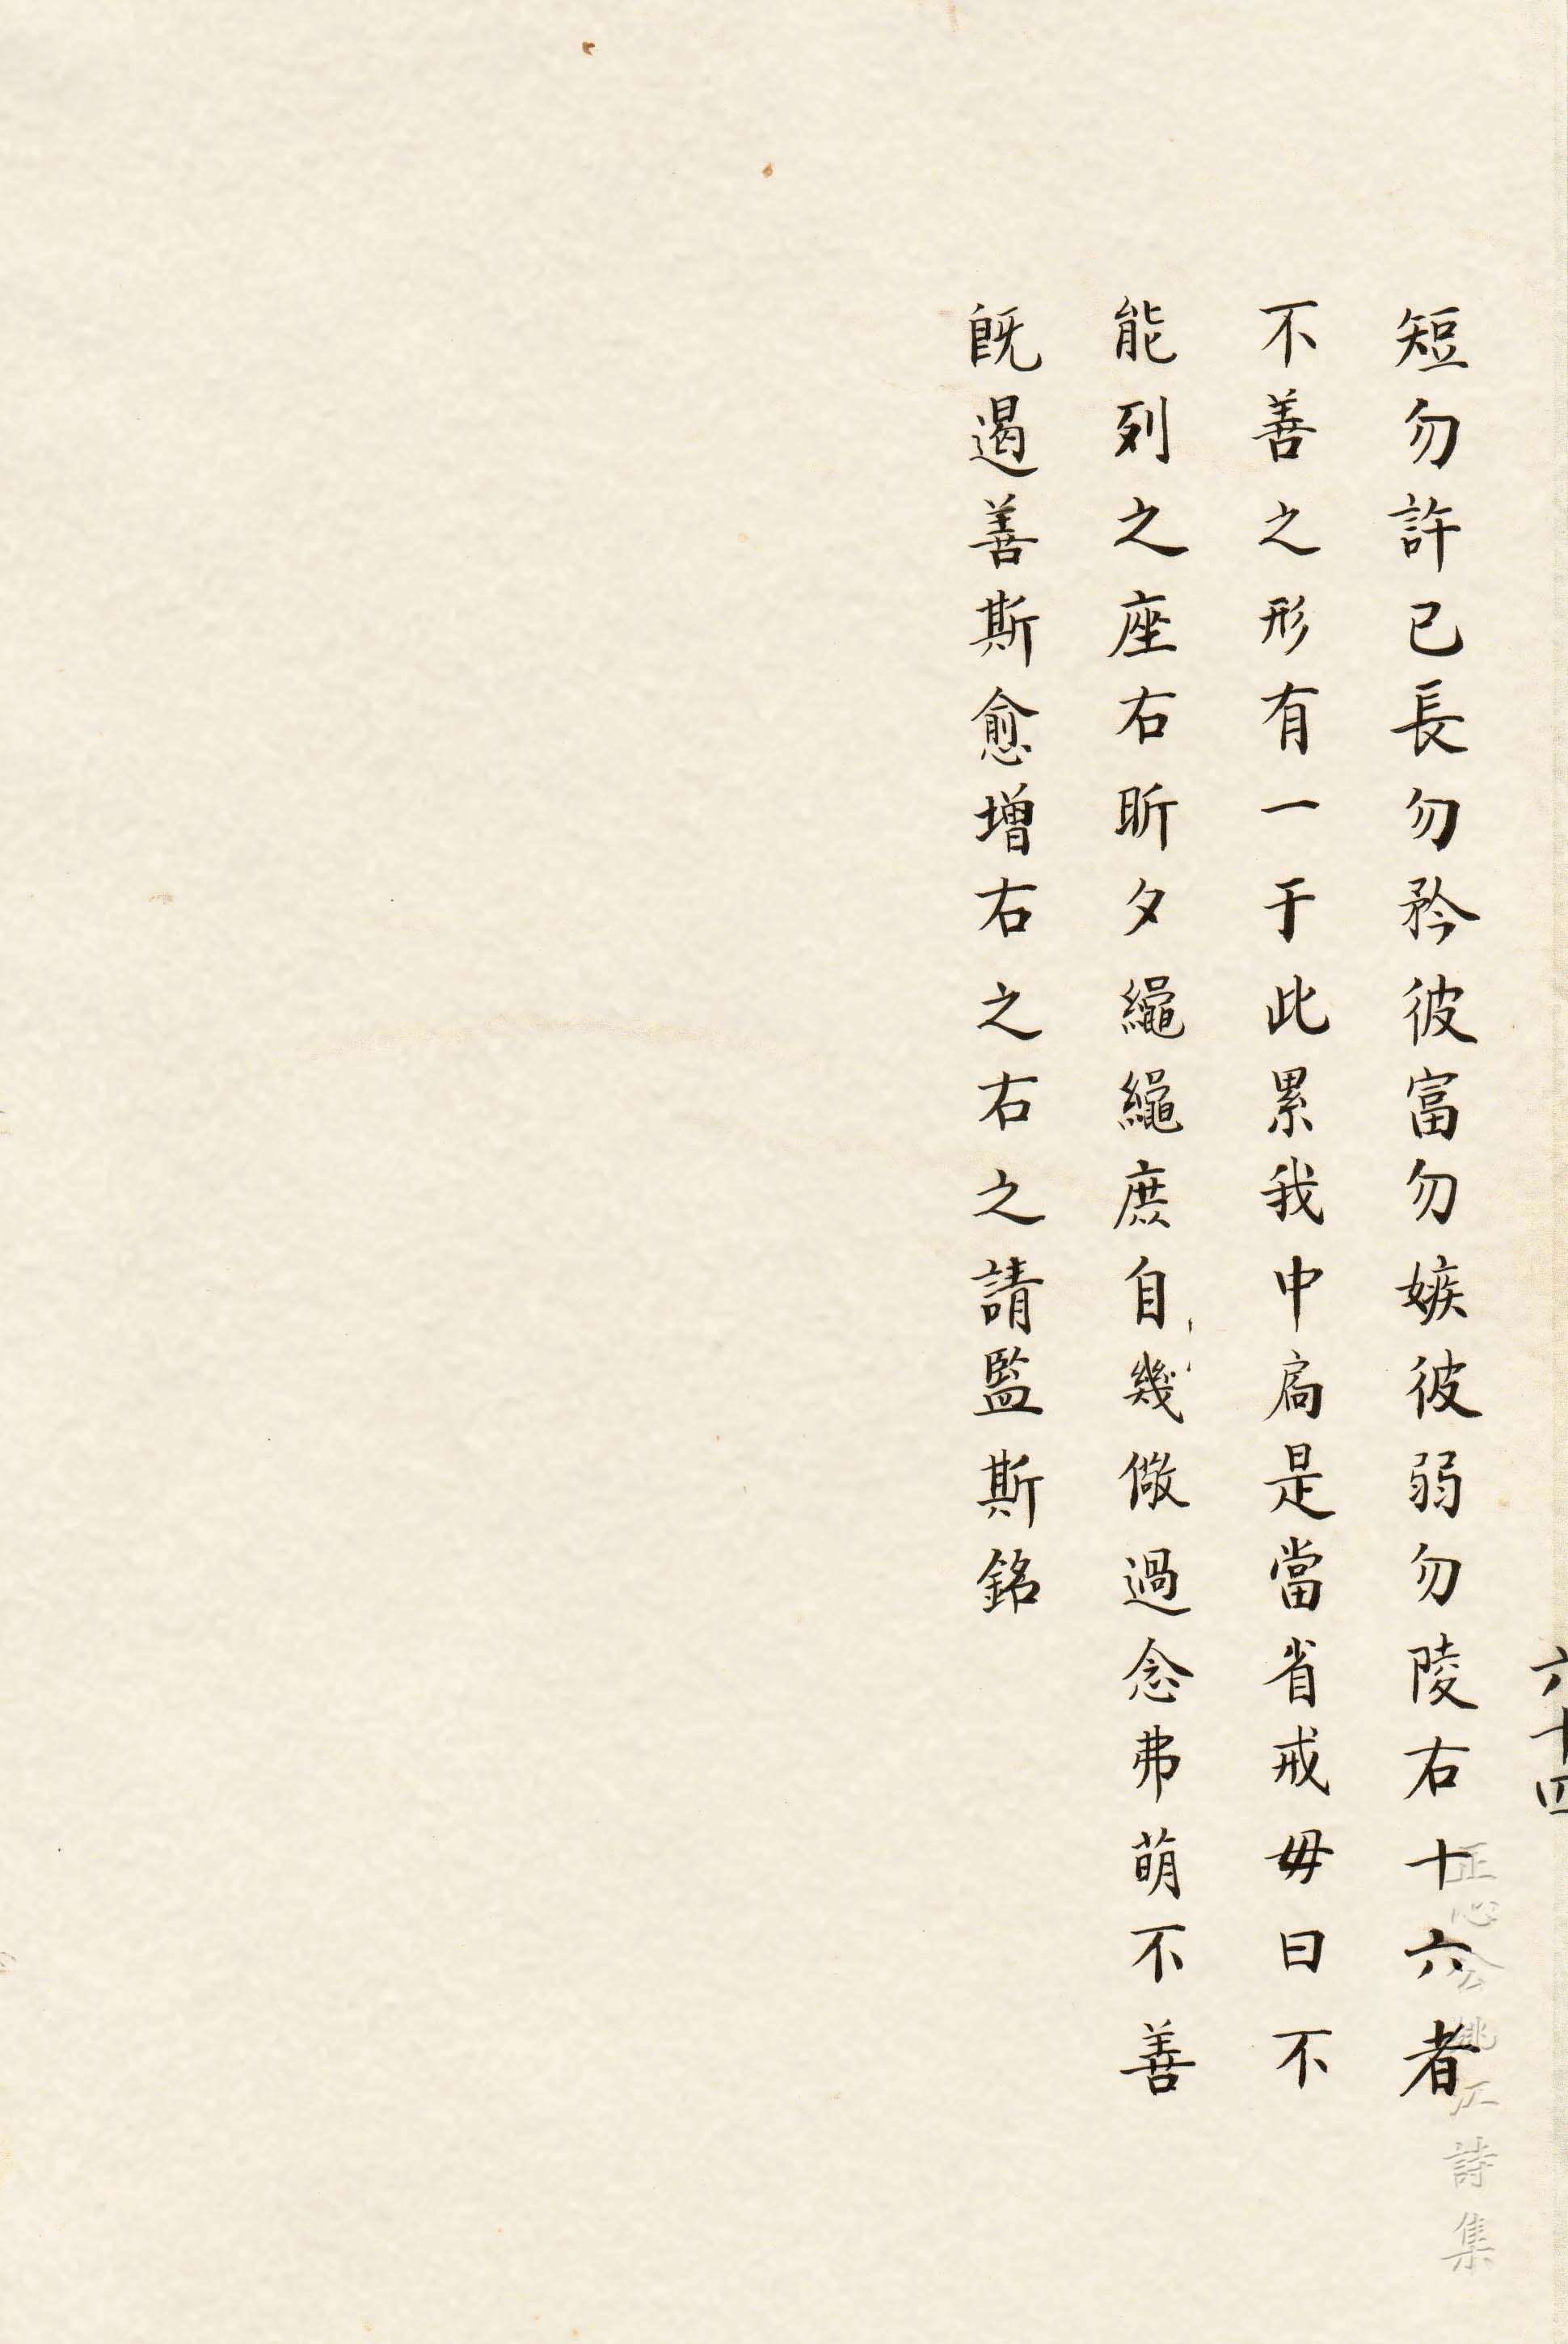 六十四
短勿許已長勿矜彼富勿嫉彼弱勿陵右十六者
不善之形有一于此累我中扃是當省戒毋曰不
能列之座右昕夕繩繩庶自幾儆過念弗萌不善
既遏善斯愈增右之右之請監斯銘
正心公姚江詩集